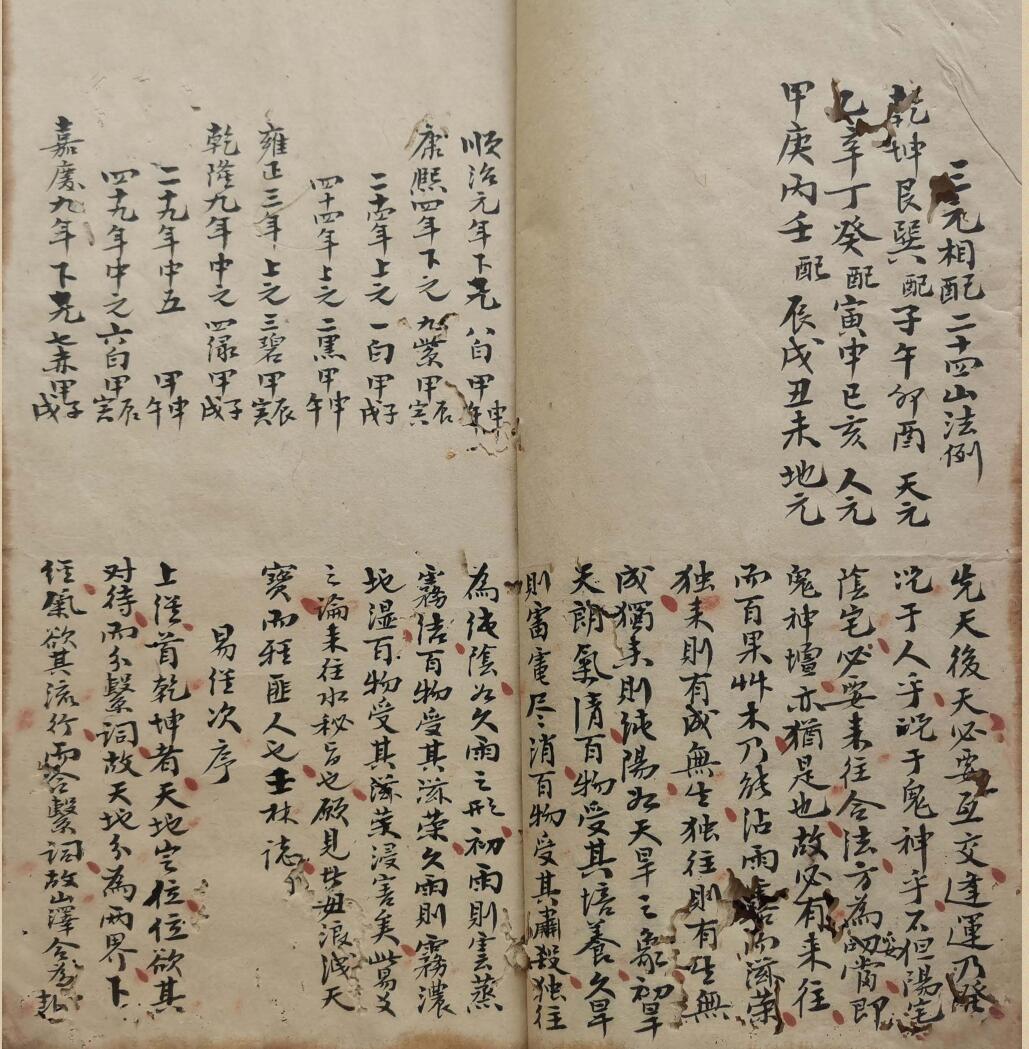 三元相配二十四山法例
乾坤艮巽配子午卯酉 天元
乙辛丁癸配寅申巳亥 人元
甲庚丙壬配辰戌丑未地元
順治元年下元 八白甲申午
康熙四年下元 九紫甲辰寅
二十四年上元 一白甲子戌
四十四年上元 二黑甲申午
雍正三年上元 三碧甲辰寅
乾隆九年中元 四綠甲子戌
二十九年中五 甲申午
四十九年中元 六白甲辰寅
嘉慶九年下元 七赤甲子戌
先天後天必要互交逢運乃發
况于人乎况于鬼神乎不但陽宅
陰宅必要来往合法方為妥當即
鬼神壇亦猶是也故必有来往
而百果艸木乃能沾雨露而滋榮
独来則有成無生独往則有生無
成獨来則純陽如天旱之象初旱
天朗氣清百物受其培養久旱
則雷電尽消百物受其肅殺独往
為純陰如久雨之形初雨則雲蒸
霧结百物受其滋荣久雨則霧濃
地湿百物受其滋荣浸害矣此易爻
之論来往水秘旨也願見此毋泿洩天
寳而種匪人也 林誌
易經次序
上經首乾坤者天地定位位欲其
对待而分繫詞故天地分為两界下
經氣欲其流行而合繫詞故山澤合為